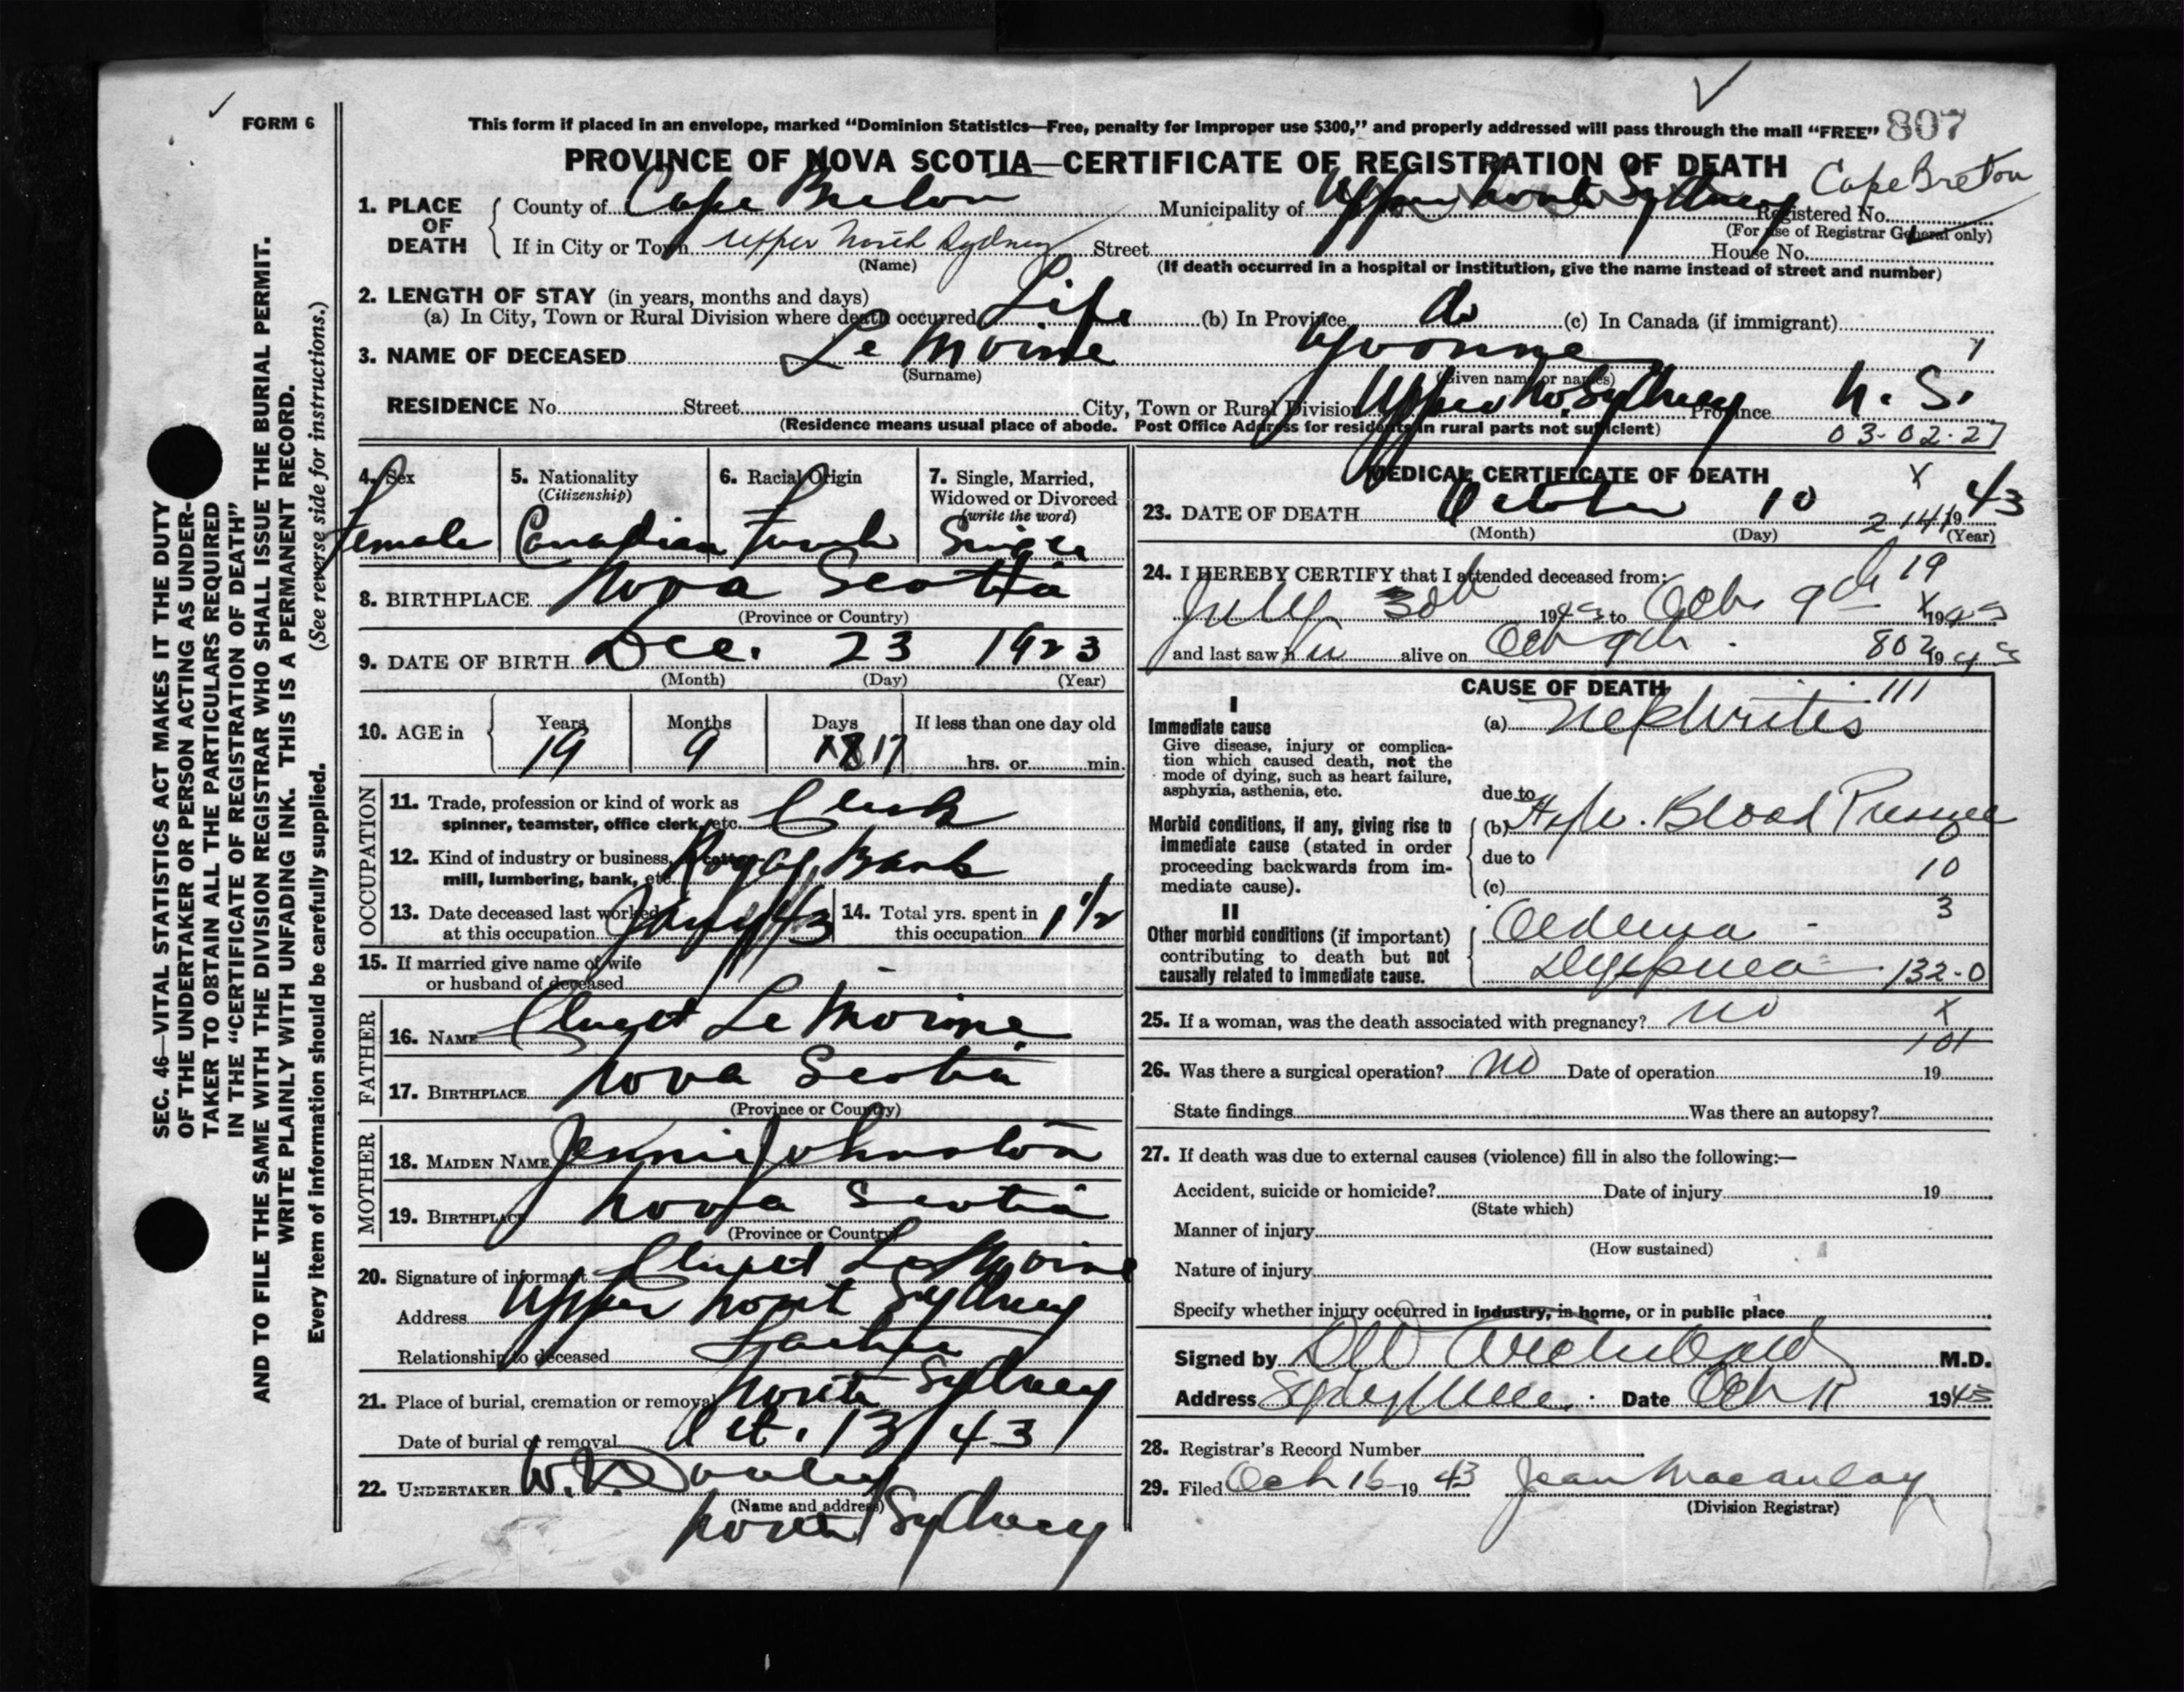 FORM 6
This form if placed in an envelope, marked “Dominion Statistics—Free, penalty for improper use $300,” and properly addressed will pass through the mail “FREE” 807
PROVINCE OF NOVA SCOTIA—CERTIFICATE OF REGISTRATION OF DEATH
Cape Breton
1. PLACE OF DEATH
County of Cape Breton Municipality of Upper North Sydney Registered No.
(For use of Registrar General only)
If in City or Town Upper North Sydney Street House No.
(Name) (If death occurred in a hospital or institution, give the name instead of street and number)
2. LENGTH OF STAY (in years, months and days)
(a) In City, Town or Rural Division where death occurred Life (b) In Province do (c) In Canada (if immigrant)
3. NAME OF DECEASED Le Moine Yvonne 1
(Surname) (Given name or names)
RESIDENCE No. Street City, Town or Rural Division Upper No. Sydney Province N. S.
(Residence means usual place of abode. Post Office Address for residents in rural parts not sufficient) 03-02-27
4. Sex
Female
5. Nationality
(Citizenship)
Canadian
6. Racial Origin
French
7. Single, Married,
Widowed or Divorced
(write the word)
Single
8. BIRTHPLACE Nova Scotia
(Province or Country)
9. DATE OF BIRTH Dec. 23 1923
(Month) (Day) (Year)
10. AGE in
Years Months Days If less than one day old
19 9 17 hrs. or min.
OCCUPATION
11. Trade, profession or kind of work as
spinner, teamster, office clerk, etc. Clerk
12. Kind of industry or business, cotton
mill, lumbering, bank, etc. Royal Bank
13. Date deceased last worked
at this occupation July/43
14. Total yrs. spent in
this occupation 1 1/2
15. If married give name of wife
or husband of deceased -
FATHER
16. NAME Le Moine
17. BIRTHPLACE Nova Scotia
(Province or Country)
MOTHER
18. MAIDEN NAME Jennie Johnston
19. BIRTHPLACE Nova Scotia
(Province or Country)
20. Signature of informant Le Moine
Address Upper North Sydney
Relationship to deceased Father
21. Place of burial, cremation or removal North Sydney
Date of burial or removal Oct. 13/43
22. UNDERTAKER W.
(Name and address)
North Sydney
MEDICAL CERTIFICATE OF DEATH
X
23. DATE OF DEATH October 10 214 1943
(Month) (Day) (Year)
24. I HEREBY CERTIFY that I attended deceased from: 19
July 30th 1943 to Oct 9th X 1943
and last saw her alive on Oct 9th 802 1943
CAUSE OF DEATH 111
I
Immediate cause
Give disease, injury or complica-
tion which caused death, not the
mode of dying, such as heart failure,
asphyxia, asthenia, etc.
(a) Nephritis
due to
Morbid conditions, if any, giving rise to
immediate cause (stated in order
proceeding backwards from im-
mediate cause).
(b) Blood Pressure
due to 10
(c)
3
II
Other morbid conditions (if important)
contributing to death but not
causally related to immediate cause.
Oedema
Dyspnea 132-0
25. If a woman, was the death associated with pregnancy? no X
101
26. Was there a surgical operation? no Date of operation 19
State findings Was there an autopsy?
27. If death was due to external causes (violence) fill in also the following:—
Accident, suicide or homicide? Date of injury 19
(State which)
Manner of injury
(How sustained)
Nature of injury
Specify whether injury occurred in industry, in home, or in public place
Signed by Archibald M.D.
Address Date Oct 11 1943
28. Registrar's Record Number
29. Filed Oct 16 1943 Jean Macaulay
(Division Registrar)
SEC. 46—VITAL STATISTICS ACT MAKES IT THE DUTY
OF THE UNDERTAKER OR PERSON ACTING AS UNDER-
TAKER TO OBTAIN ALL THE PARTICULARS REQUIRED
IN THE “CERTIFICATE OF REGISTRATION OF DEATH”
AND TO FILE THE SAME WITH THE DIVISION REGISTRAR WHO SHALL ISSUE THE BURIAL PERMIT.
WRITE PLAINLY WITH UNFADING INK. THIS IS A PERMANENT RECORD.
Every item of information should be carefully supplied. (See reverse side for instructions.)